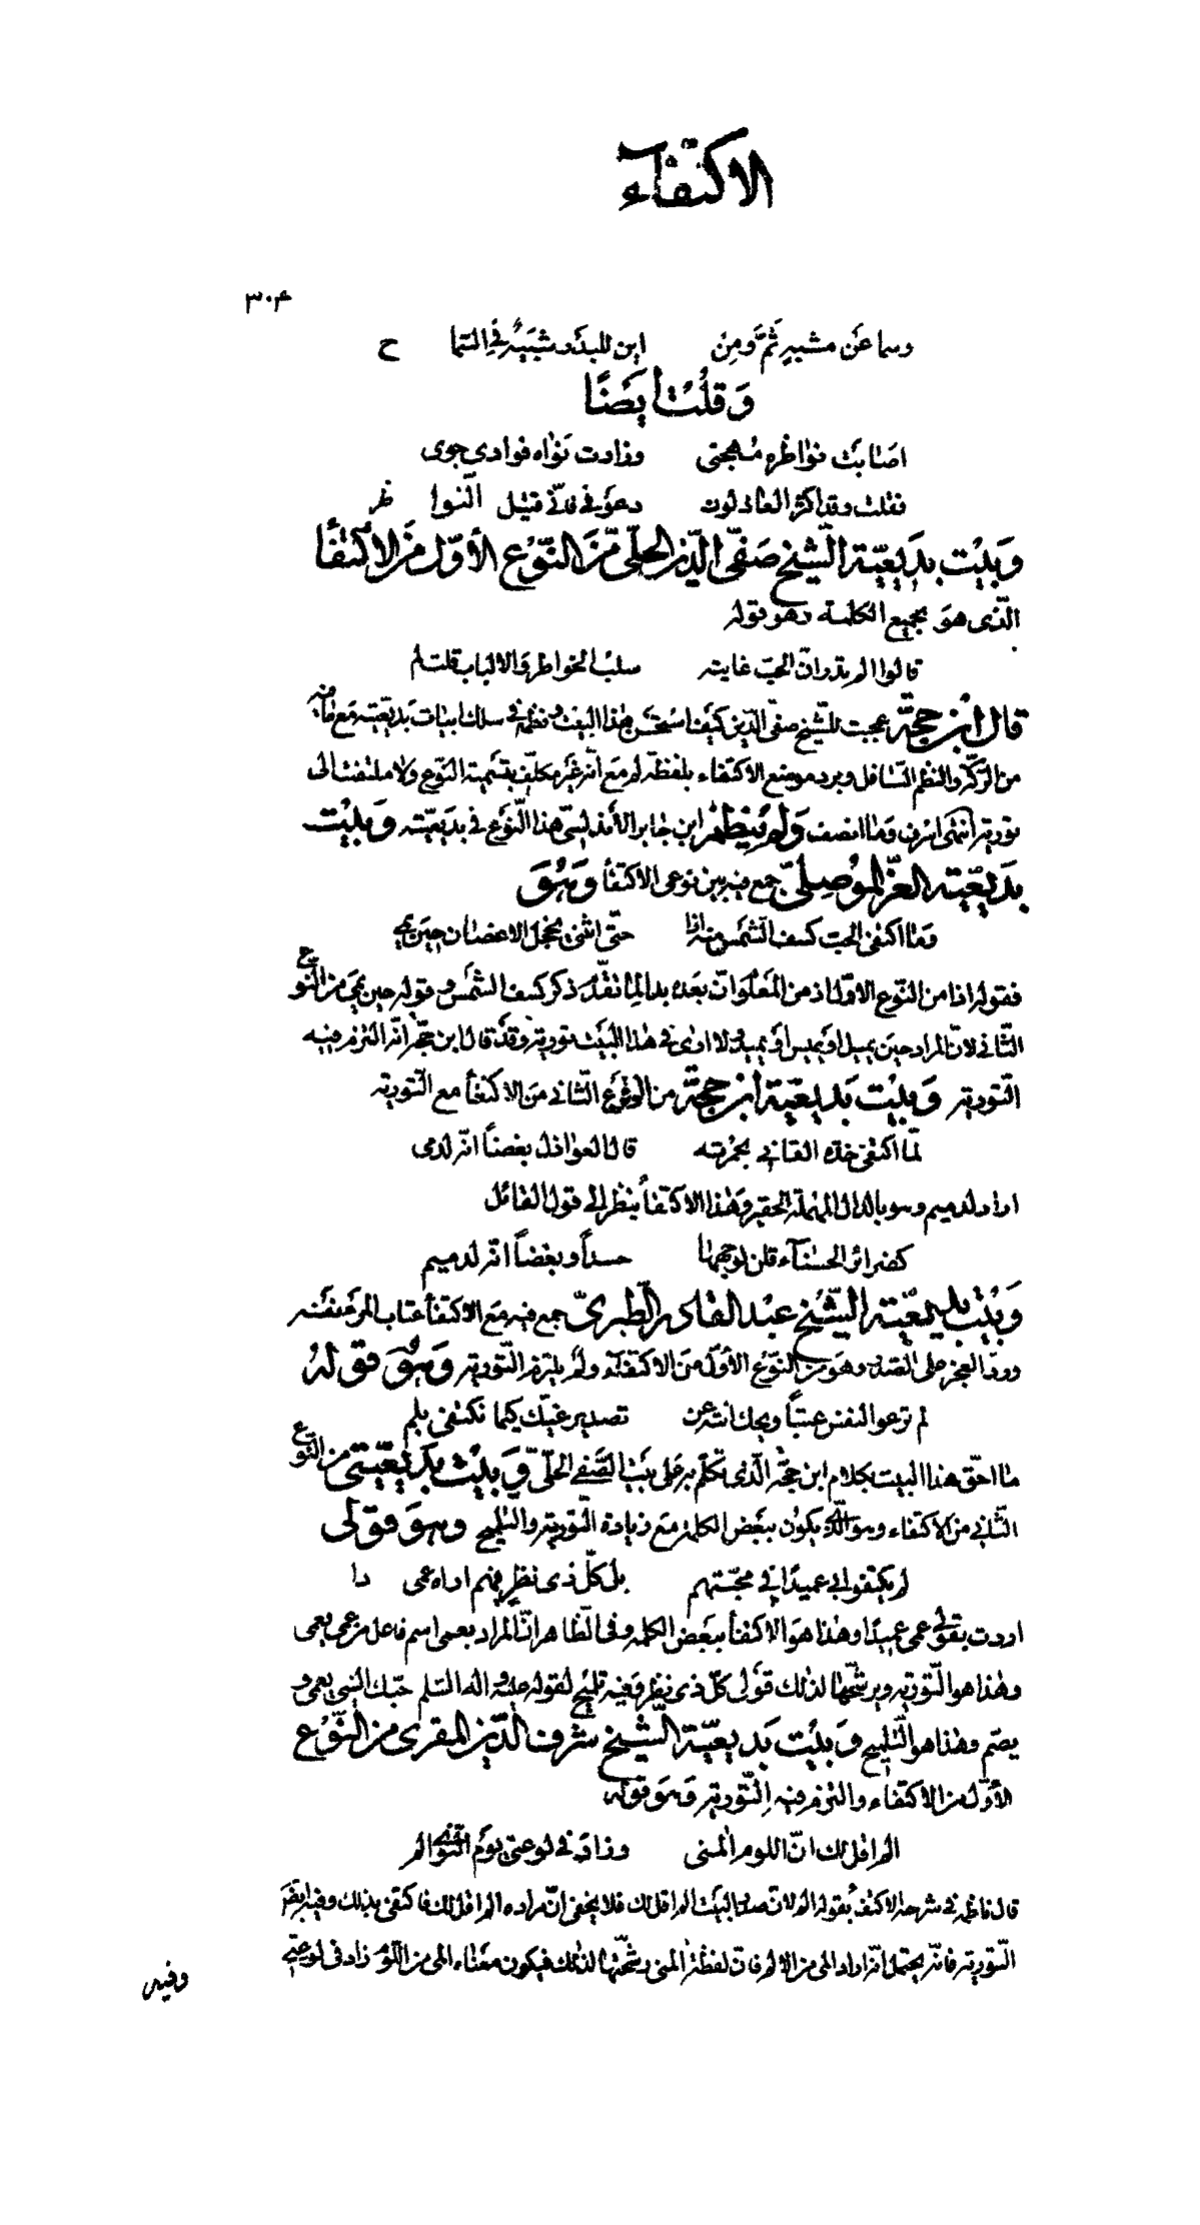 الاكتفآء
٣٠۴
وسما عَن مشبيهٍ ثمّ ومن    اين للبدَر شبَيهٌ في السّما    ح
وَقلتُ أيضًا
اصَابَت نواظره مُهجتى    وزادت نَواه فوادى جوى
فقلت وقد اكثر العاذلون    دعَونى فانّى قتيل النّوا    ظر
وَبيْت بديَعيّة الشّيخ صَفىّ الدّين الحلّى مّن النّوُع الأوّل مَن الاكتفأ
الّذى هوَ بجميع الكلمة وهو قوله
قالوا الم تدر انّ الحبّ غايته    سلبُ الخواطر والالباب قلت لم
قال ابن حجّة عجبت للشّيخ صفىّ الدّين كيَف استحسَن هذا البيَت ونظمه فى سلك ابيات بَديَعيّته مَع ما فيه
من الركّة والنظم السّافل وبرد موضع الاكتفاء بلفظة لم مَع انّه غيَر مكلّف بتسَمية النّوَع ولا ملتفت الى
تورية انتهى وما انصف ولم يَنظم ابن جابر الأندلسىّ هذا النّوَع فى بديَعيّته وَبيْت
بدَيعيّة العزّ الموُصلىّ جمع فيه بين نوعى الاكتفأ وَهُوَ
وَما اكتفى الحبّ كسف الشّمس منه اذا    حتّى انثنى يخجل الاغصان حين يمي
فقوله اذا من النّوع الاوّل اذ من المَعلوم انّ بَعده بدا لما تقدّم من ذكر كسف الشمَس وقوله حين يمي من النّوع
الثّانى لانّ المراد حيَن يميل او يميس او يميد ولا ارى فى هذا البيَت تورية وقد قال ابن حجّة انّه التزم فيه
التّورية وَبيْت بَديَعيّة ابن حجّة من النوَع الثّانى منَ الاكتفأ مع التّورية
لمّا اكتفى خدّه القانى بحمُرته    قال العواذل بغضاً انّه لدمى
اراد لدميم وهو بالدال المهملة الحقير وَهذا الاكتفأ ينظر الى قول القائل
كضرائر الحسنآء قلن لوجهها    حسداً وبغضاً انّه لدميم
وَبيْت بديعيّة الشّيخ عبْد القادر الطّبرىّ جمع فيه مَع الاكتفأ عتاب المرَء نفسَه
وردّ العجز على الصّدر وهوَ من النّوع الأوّل منَ الاكتفآء ولم يلتزم التّورية وَهُوَ قوَلهُ
لم ترعو النفس عتبًا ويحك انته عن    تصدير غيّك كيما تكتفى بلم
ما احقّ هذا البيت بكلام ابن حجّة الّذى تكلّم به عَلى بيَت الصّفى الحلّىّ وَبيْت بدَيعيّتى من النّوع
الثّانى من الاكتفاء وهو الّذى يكوُن ببَعض الكلمة مَع زيادة التّورية والتلميح وهوَ قوَلى
لم يكتفوا بى عميدًا فى محبّتهم    بل كلّ ذى نظرٍ فيهم اراه عمى    دا
اردت بقَولى عمى عميدًا وهذا هوَ الاكتفأ ببَعض الكلمة وفى الظّاهر انّ المراد بعمى اسم فاعل من عمى يعمى
وهذا هو التّورية ويرشّحها لذلك قوَلى كلّ ذى نظر وَفيه تلميح لقوله عليه واله السّلم حبّك الشئ يعمى و
يصمّ وهذا هو التّلميح وَبيْت بَديعيّة الشّيخ شرف الدّين المقرى من النّوُع
الأوّل من الاكتفاء والتزم فيه التّورية وَهوَ قوله
الم اقل لك انّ اللوم المنى    وزاد فى لوعتى يوَم النّوى الم
قال ناظمه فى شرحه الاكتفأ بقوله الم لان صدر البيَت الم اقل لك فلا يخفى انّ مراده الم اقل لك فاكتفى بذلك وفيه ايضَ
التّورية فانّه يحتمل انّه اراد الم من الالم فانّ لفظة المنى رشّحتها لذلك فيكون معَناه الم من اللّوم زاد فى لوعتى
وفيه